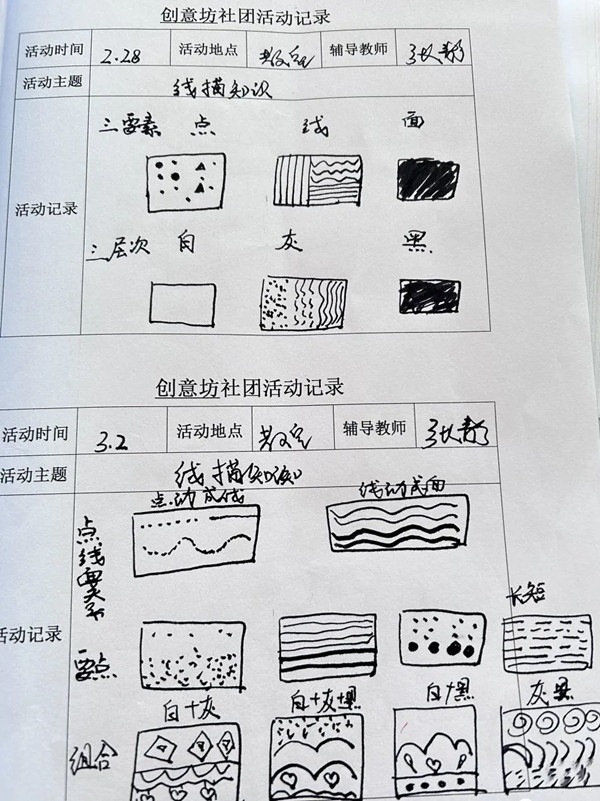 创意坊社团活动记录
活动时间 2.28 活动地点 教室 辅导教师 张
活动主题 线描知识
三要素 点 线 面
活动记录
三层次 白 灰 黑
创意坊社团活动记录
活动时间 3.2 活动地点 教室 辅导教师 张
活动主题 线描知识
点动成线 线动成面
点线面关系
活动记录
长短
要点
白+灰 白+灰+黑 白+黑 灰 黑
组合